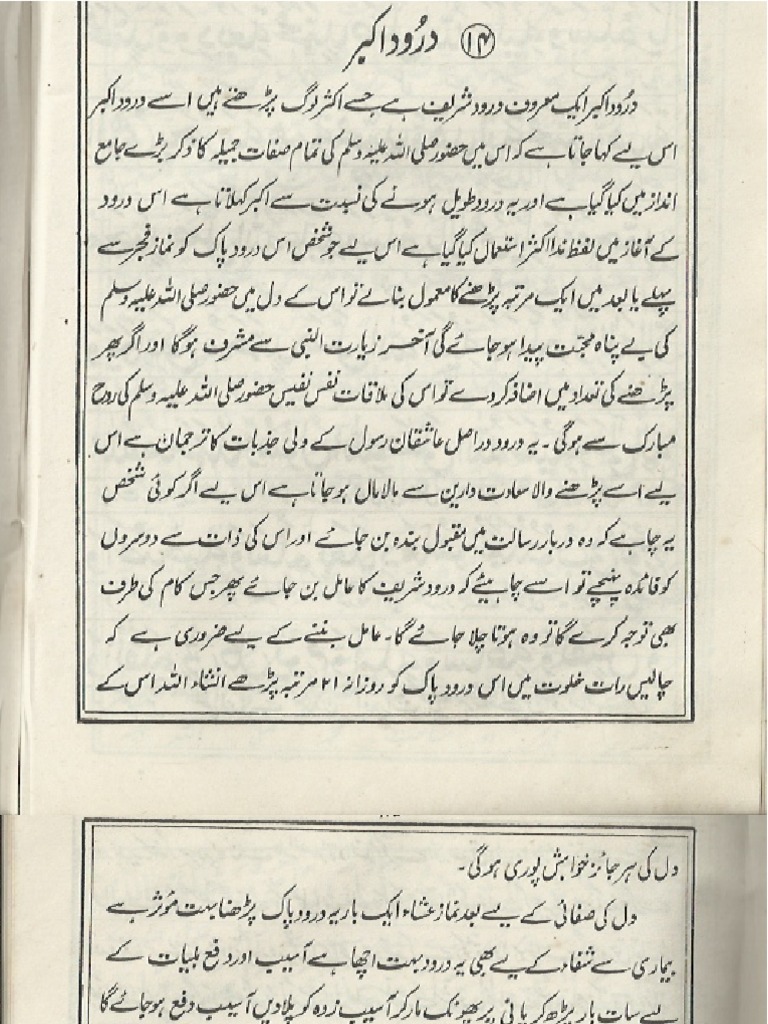 ۱۴ درُود اکبر
درُود اکبر ایک معروف درود شریف ہے جسے اکثر لوگ پڑھتے ہیں اسے درود اکبر
اس لیے کہا جاتا ہے کہ اس میں حضور صلی اللہ علیہ وسلم کی تمام صفات جمیلہ کا ذکر بڑے جامع
انداز میں کیا گیا ہے اور یہ درود طویل ہونے کی نسبت سے اکبر کہلاتا ہے اس درود
کے آغاز میں لفظ ندا اکثر استعمال کیا گیا ہے اس لیے جو شخص اس درود پاک کو نماز فجر سے
پہلے یا بعد میں ایک مرتبہ پڑھنے کا معمول بنالے تو اس کے دل میں حضور صلی اللہ علیہ وسلم
کی بے پناہ محبّت پیدا ہو جائے گی آخر زیارت النبی سے مشرف ہوگا اور اگر پھر
پڑھنے کی تعداد میں اضافہ کر دے تو اس کی ملاقات نفس نفیس حضور صلی اللہ علیہ وسلم کی روح
مبارک سے ہوگی ۔ یہ درود دراصل عاشقان رسول کے ولی جذبات کا ترجمان ہے اس
لیے اسے پڑھنے والا سعادت دارین سے مالا مال ہو جاتا ہے اس لیے اگر کوئی شخص
یہ چاہے کہ وہ دربار رسالت میں مقبول بندہ بن جائے اور اس کی ذات سے دوسروں
کو فائدہ پہنچے تو اسے چاہیئے کہ درود شریف کا عامل بن جائے پھر جس کام کی طرف
بھی توجہ کرے گا تو وہ ہوتا چلا جائے گا۔ عامل بننے کے لیے ضروری ہے کہ
چالیس رات خلوت میں اس درود پاک کو روزانہ ۲۱ مرتبہ پڑھے انشاء اللہ اس کے
دل کی ہر جائز خواہش پوری ہوگی۔
دل کی صفائی کے لیے بعد نماز عشاء ایک بار یہ درود پاک پڑھنا بہت مؤثر ہے
بیماری سے شفاء کے لیے بھی یہ درود بہت اچھا ہے آسیب اور دفع بلیات کے
لیے سات بار پڑھ کر پانی پر پھونک مار کر آسیب زدہ کو پلا دیں آسیب دفع ہو جائے گا